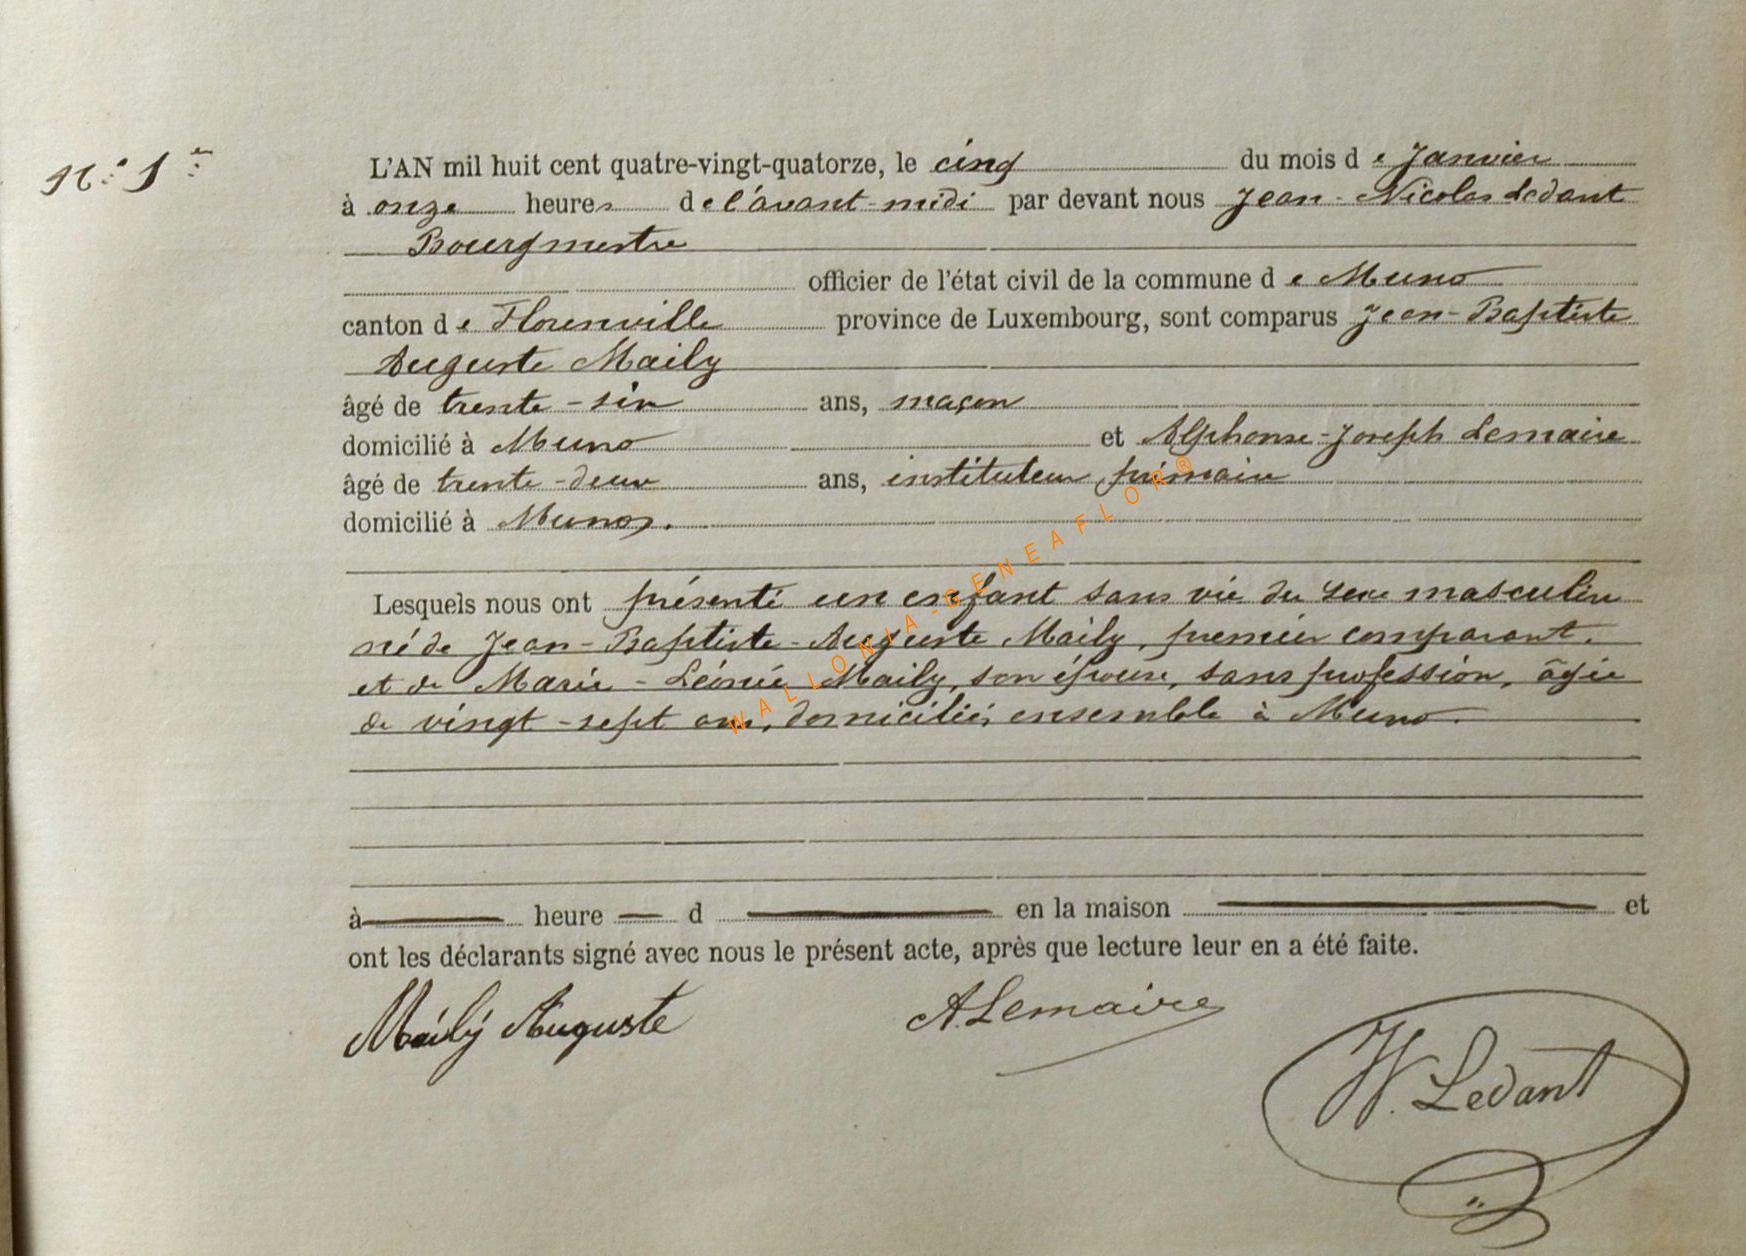 N° 1er
L'AN mil huit cent quatre-vingt-quatorze, le cinq du mois de Janvier
à onze heures de l'avant-midi par devant nous Jean-Nicolas Ledant
Bourgmestre
officier de l'état civil de la commune de Muno
canton de Florenville province de Luxembourg, sont comparus Jean-Baptiste
Auguste Maily
âgé de trente-six ans, maçon
domicilié à Muno et Alphonse-Joseph Lemaire
âgé de trente-deux ans, instituteur primaire
domicilié à Muno.
Lesquels nous ont présenté un enfant sans vie du sexe masculin
né de Jean-Baptiste-Auguste Maily, premier comparant,
et de Marie-Léonie Maily, son épouse, sans profession, âgée
de vingt-sept ans, domiciliés ensemble à Muno.
à heure d en la maison et
ont les déclarants signé avec nous le présent acte, après que lecture leur en a été faite.
Maily Auguste A. Lemaire
N. Ledant
WALLONIA-GENEAFLOR®